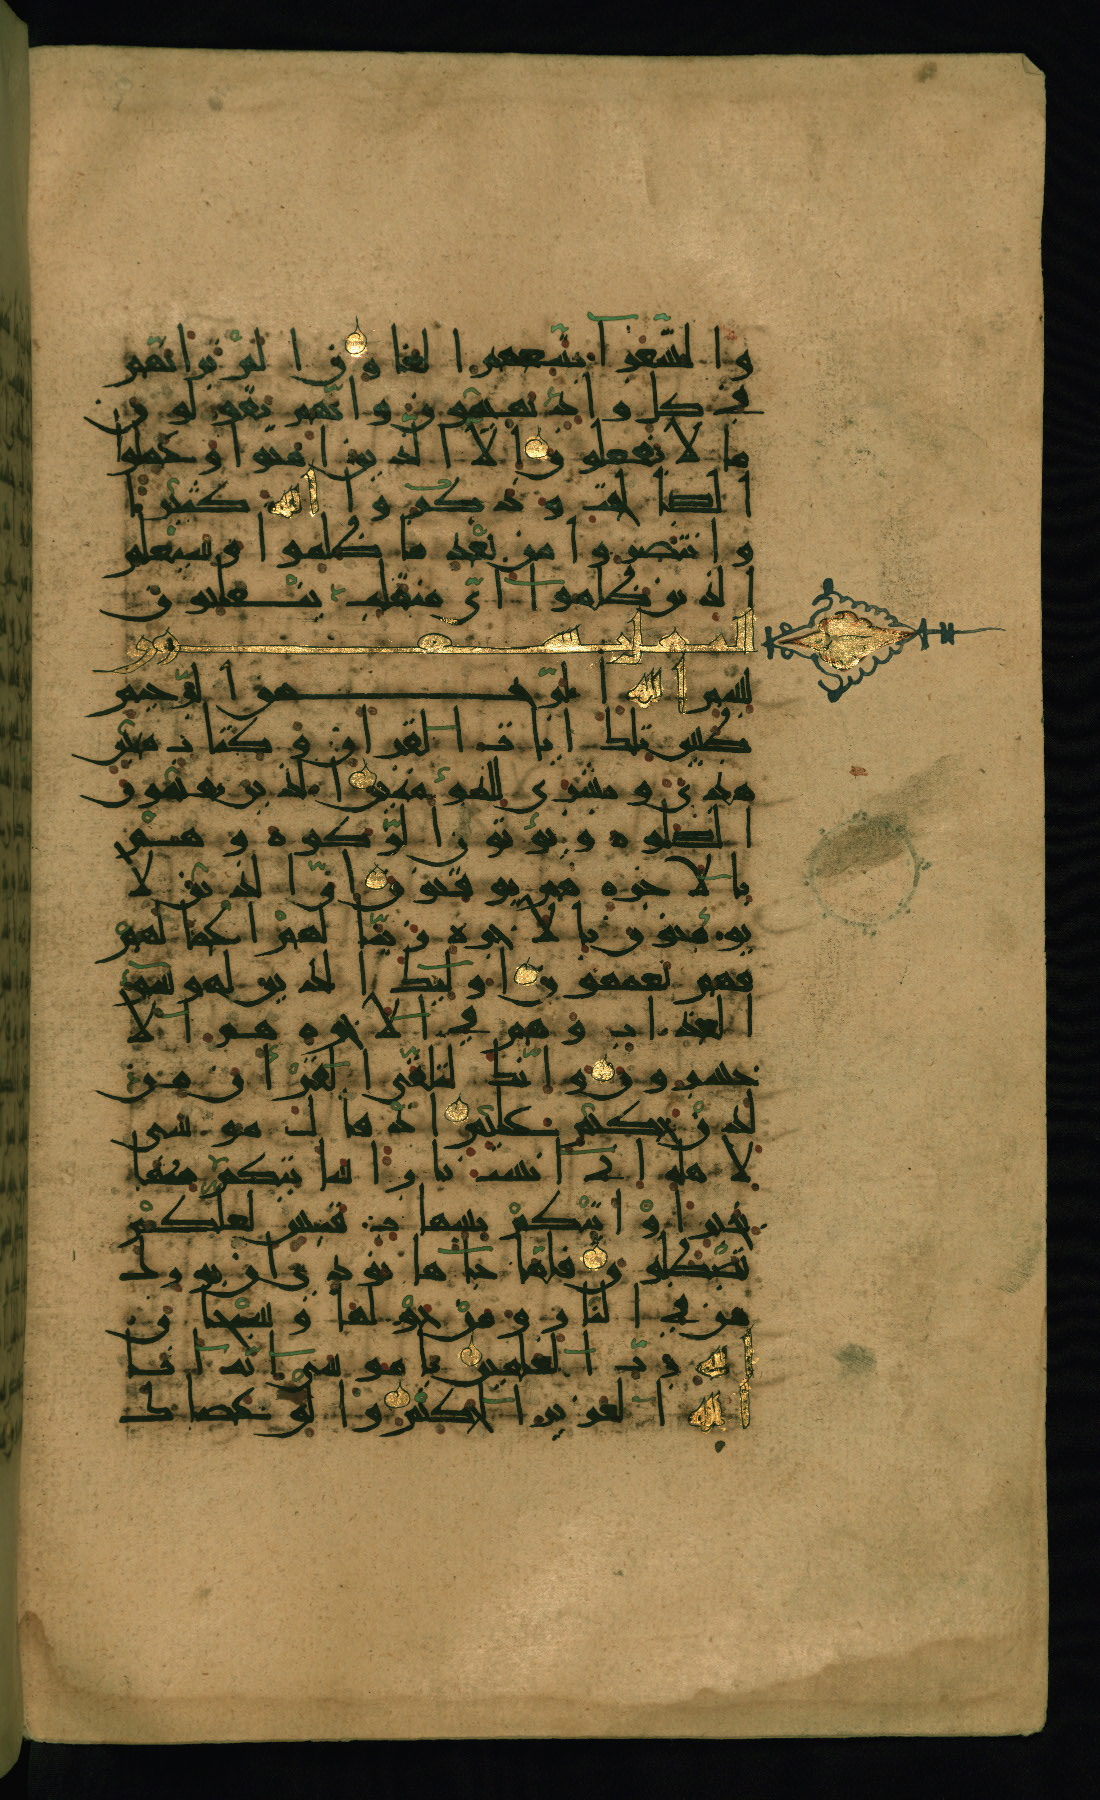 والشعرا يتبعهم الغاون الم تر انهم
في كل واد يهيمون وانهم يقولون
ما لا يفعلون الا الذين امنوا وعملوا
الصلحت وذكروا الله كثيرا
وانتصروا من بعد ما ظلموا وسيعلم
الذين ظلموا اي منقلب ينقلبون
بسم الله الرحمن الرحيم
طس تلك ايات القران وكتاب مبين
هدى وبشرى للمؤمنين الذين يقيمون
الصلوه ويؤتون الزكوه وهم
بالاخره هم يوقنون ان الذين لا
يومنون بالاخره زينا لهم اعمالهم
فهم يعمهون اوليك الذين لهم سو
العذاب وهم في الاخره هم الا
خسرون وانك لتلقى القران من
لدن حكيم عليم اذ قال موسى
لاهله اني انست نارا ساتيكم منها
بخبر او اتيكم بشهاب قبس لعلكم
تصطلون فلما جاها نودي ان بورك
من في النار ومن حولها وسبحان
الله رب العلمين يا موسى انه انا
الله العزيز الحكيم والق عصاك